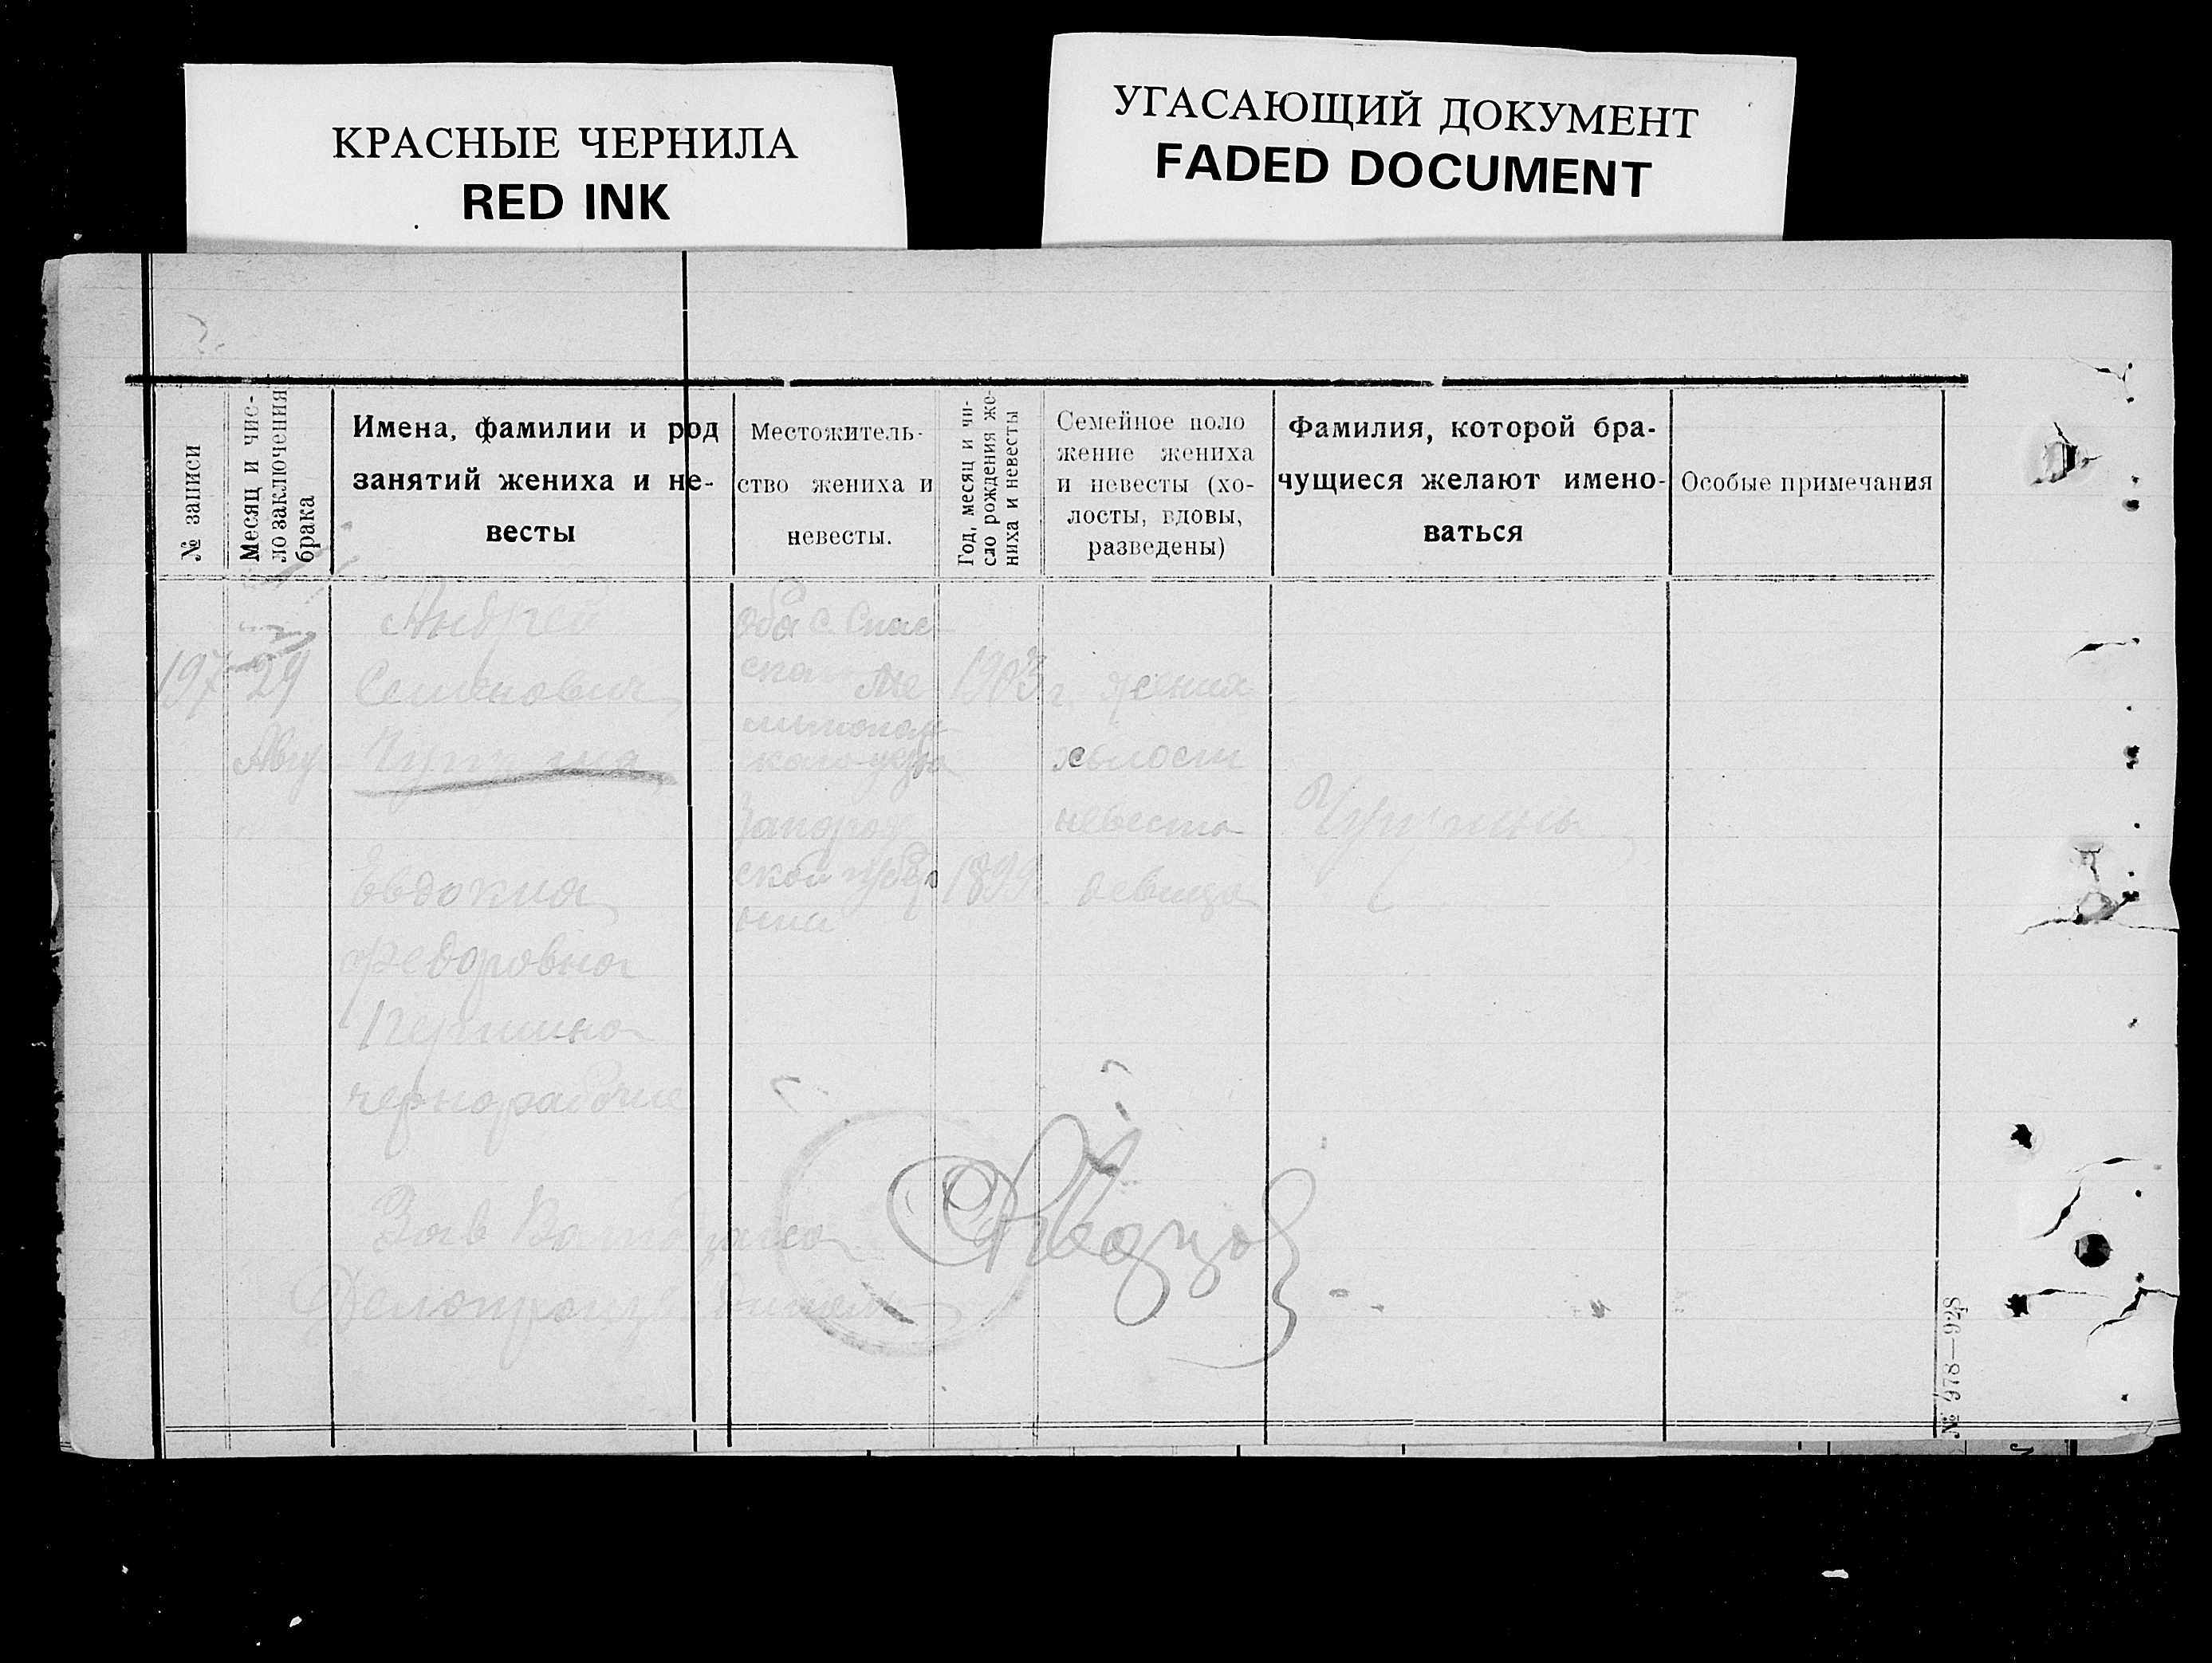 КРАСНЫЕ ЧЕРНИЛА
RED INK
УГАСАЮЩИЙ ДОКУМЕНТ
FADED DOCUMENT
№ записи
Месяц и чис-
ло заключения
брака
Имена, фамилии и род
занятий жениха и не-
весты
Местожитель-
ство жениха и
невесты.
Год, месяц и чи-
сло рождения же-
ниха и невесты
Семейное поло
жение жениха
и невесты (хо-
лосты, вдовы,
разведены)
Фамилия, которой бра-
чущиеся желают имено-
ваться
Особые примечания
197
29
Авгу
Андрей
Семенович
Евдокия
Федоровна
чернорабочие
Оба с. Спас
ское Ме
литополь
ского уезда
Запорож
ской губер
нии
1903 г.
1899 г.
жених
холост
невеста
девица
Зав
Делопроизводитель
№ 978—928